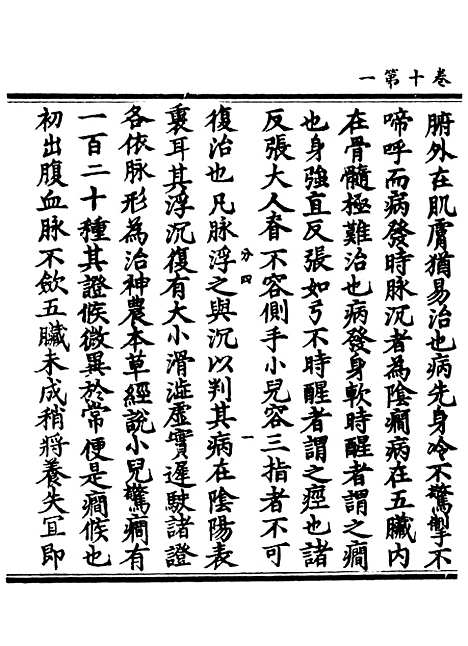 卷十第一
腑外在肌膚猶易治也病先身冷不驚掣不
啼呼而病發時脉沉者為陰癇病在五臟內
在骨髓極難治也病發身軟時醒者謂之癇
也身強直反張如弓不時醒者謂之痙也諸
反張大人脊不容側手小兒容三指者不可
分四
一
復治也凡脉浮之與沉以判其病在陰陽表
裏耳其浮沉復有大小滑澁虛實遲駛諸證
各依脉形為治神農本草經說小兒驚癇有
一百二十種其證候微異於常便是癇候也
初出腹血脉不歛五臟未成稍將養失宜即